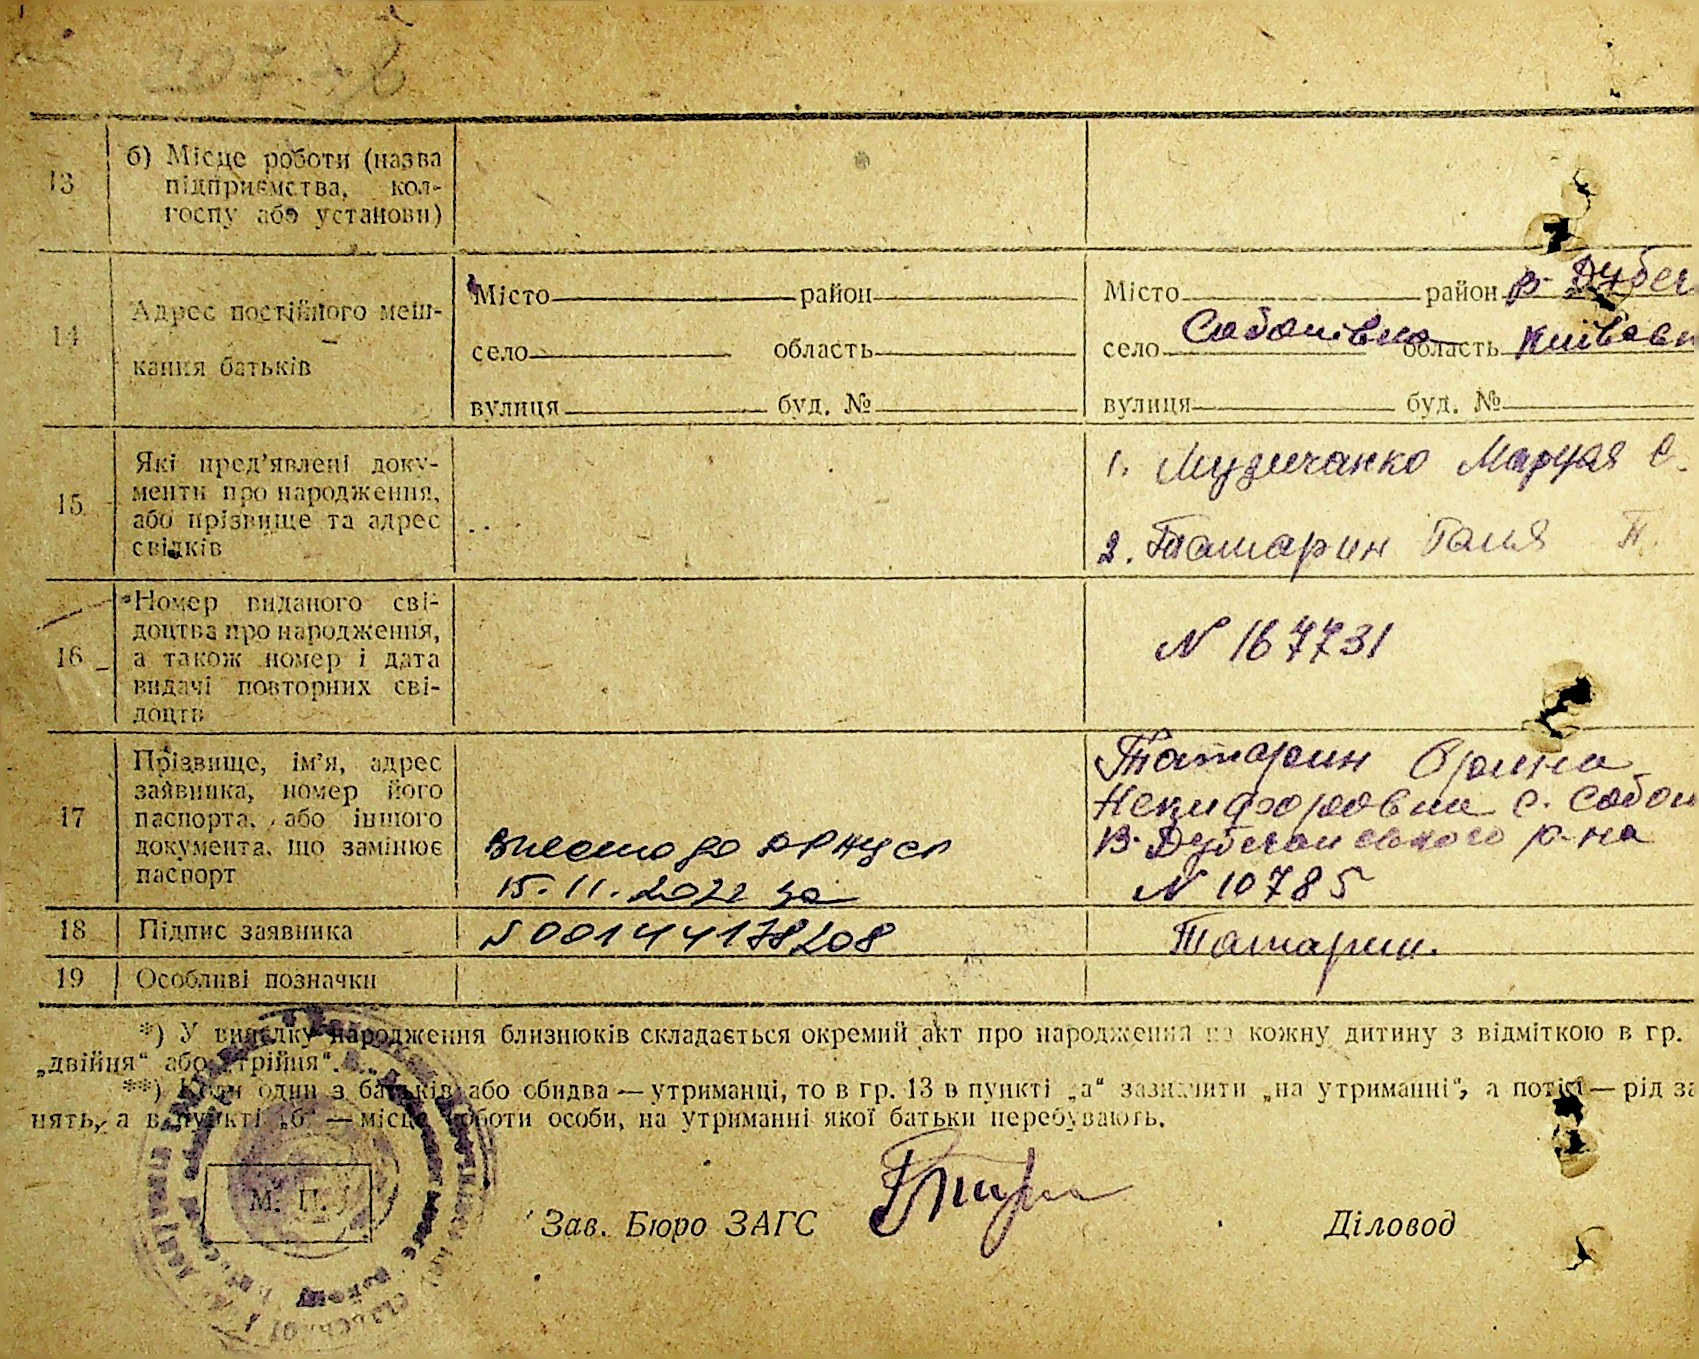 13
б) Місце роботи (назва
підприємства, кол-
госпу або установи)
14
Адрес постійного меш-
кання батьків
Місто район
село область
вулиця буд. №
Місто район В-Дубеч
село Сабанівка область Київськ
вулиця буд. №
15
Які пред’явлені доку-
менти про народження,
або прізвище та адрес
свідків
1. Маруся С.
2. Татарин Галя П.
16
Номер виданого сві-
доцтва про народження,
а також номер і дата
видачі повторних сві-
доцтв
N 167731
17
Прізвище, ім’я, адрес
заявника, номер його
паспорта, або іншого
документа, що замінює
паспорт
Внесено до ДРАЦСГ
15.11.2022 за
Татарин Орина
Некифоровна с. Сабан
р-на
N 10785
18
Підпис заявника
N 00144178208
Татарин.
19
Особливі позначки
*) У випадку народження близнюків складається окремий акт про народження на кожну дитину з відміткою в гр.
„двійня“ або „трійня“.
**) Коли один з батьків або обидва — утриманці, то в гр. 13 в пункті „а“ зазначити „на утриманні“, а потім — рід за
нять, а в пункті „б“ — місце роботи особи, на утриманні якої батьки перебувають.
М. П.
Зав. Бюро ЗАГС
Діловод